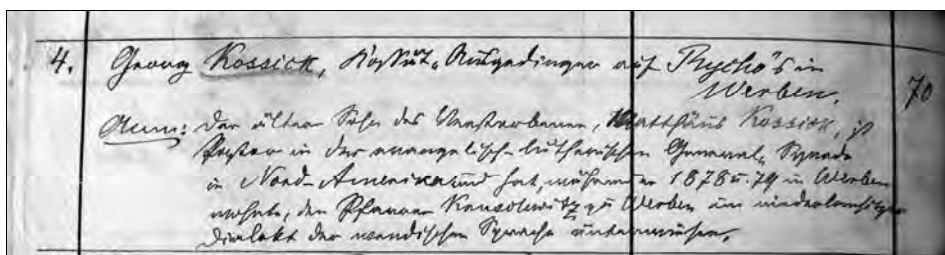 4. Georg Kossick, Kossät-Ausgedinger auf Rycho's in
Werben. 70
Anm: Der ältere Sohn des Verstorbenen, Matthäus Kossick, ist
Pastor in der evangelisch-lutherischen General-Synode
in Nord-Amerika und hat, während er 1878 u. 79 in Werben
wohnte, den Pfarrer zu Werben im niederlausitzer
Dialekt der wendischen Sprache unterwiesen.